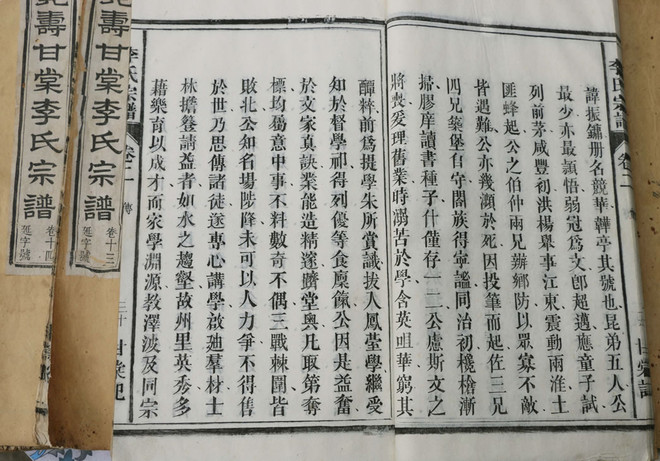 李氏宗譜 卷二
諱振鏞册名競華韡亭其號也昆弟五人公
最少亦最頴悟弱冠爲文卽超邁應童子試
列前茅咸豐初洪楊舉事江東震動兩淮土
匪蜂起公之伯仲兩兄辦鄉防以眾寡不敵
皆遇難公亦幾瀕於死因投筆而起佐三兄
四兄築堡自守闔族得寧謐同治初欃槍漸
掃膠庠讀書種子什僅存一二公慮斯文之
將喪爰理舊業時溺苦於學含英咀華窮其
醰粹前爲提學朱所賞識拔入鳳學繼受
知於督學祁得列優等食廩餼公因是益奮
於文家真訣業能造精邃躋堂奧凡取第奪
標均屬意中事不料數奇不偶三戰棘圍皆
敗北公知名場陟降未可以人力爭不得售
於世乃思傳諸徒遂專心講學啟廸羣材士
林擔簦請益者如水之趨壑故州里英秀多
藉樂育以成才而家學淵源教澤波及同宗
李氏宗譜 卷二 傳 三十
壽甘棠李氏宗譜 卷十三 延字號
壽甘棠李氏宗譜 卷十四 延字號